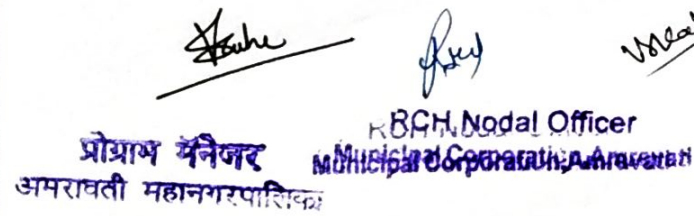 प्रोग्राम मॅनेजर
अमरावती महानगरपालिका
RCH Nodal Officer
Municipal Corporation, Amravati